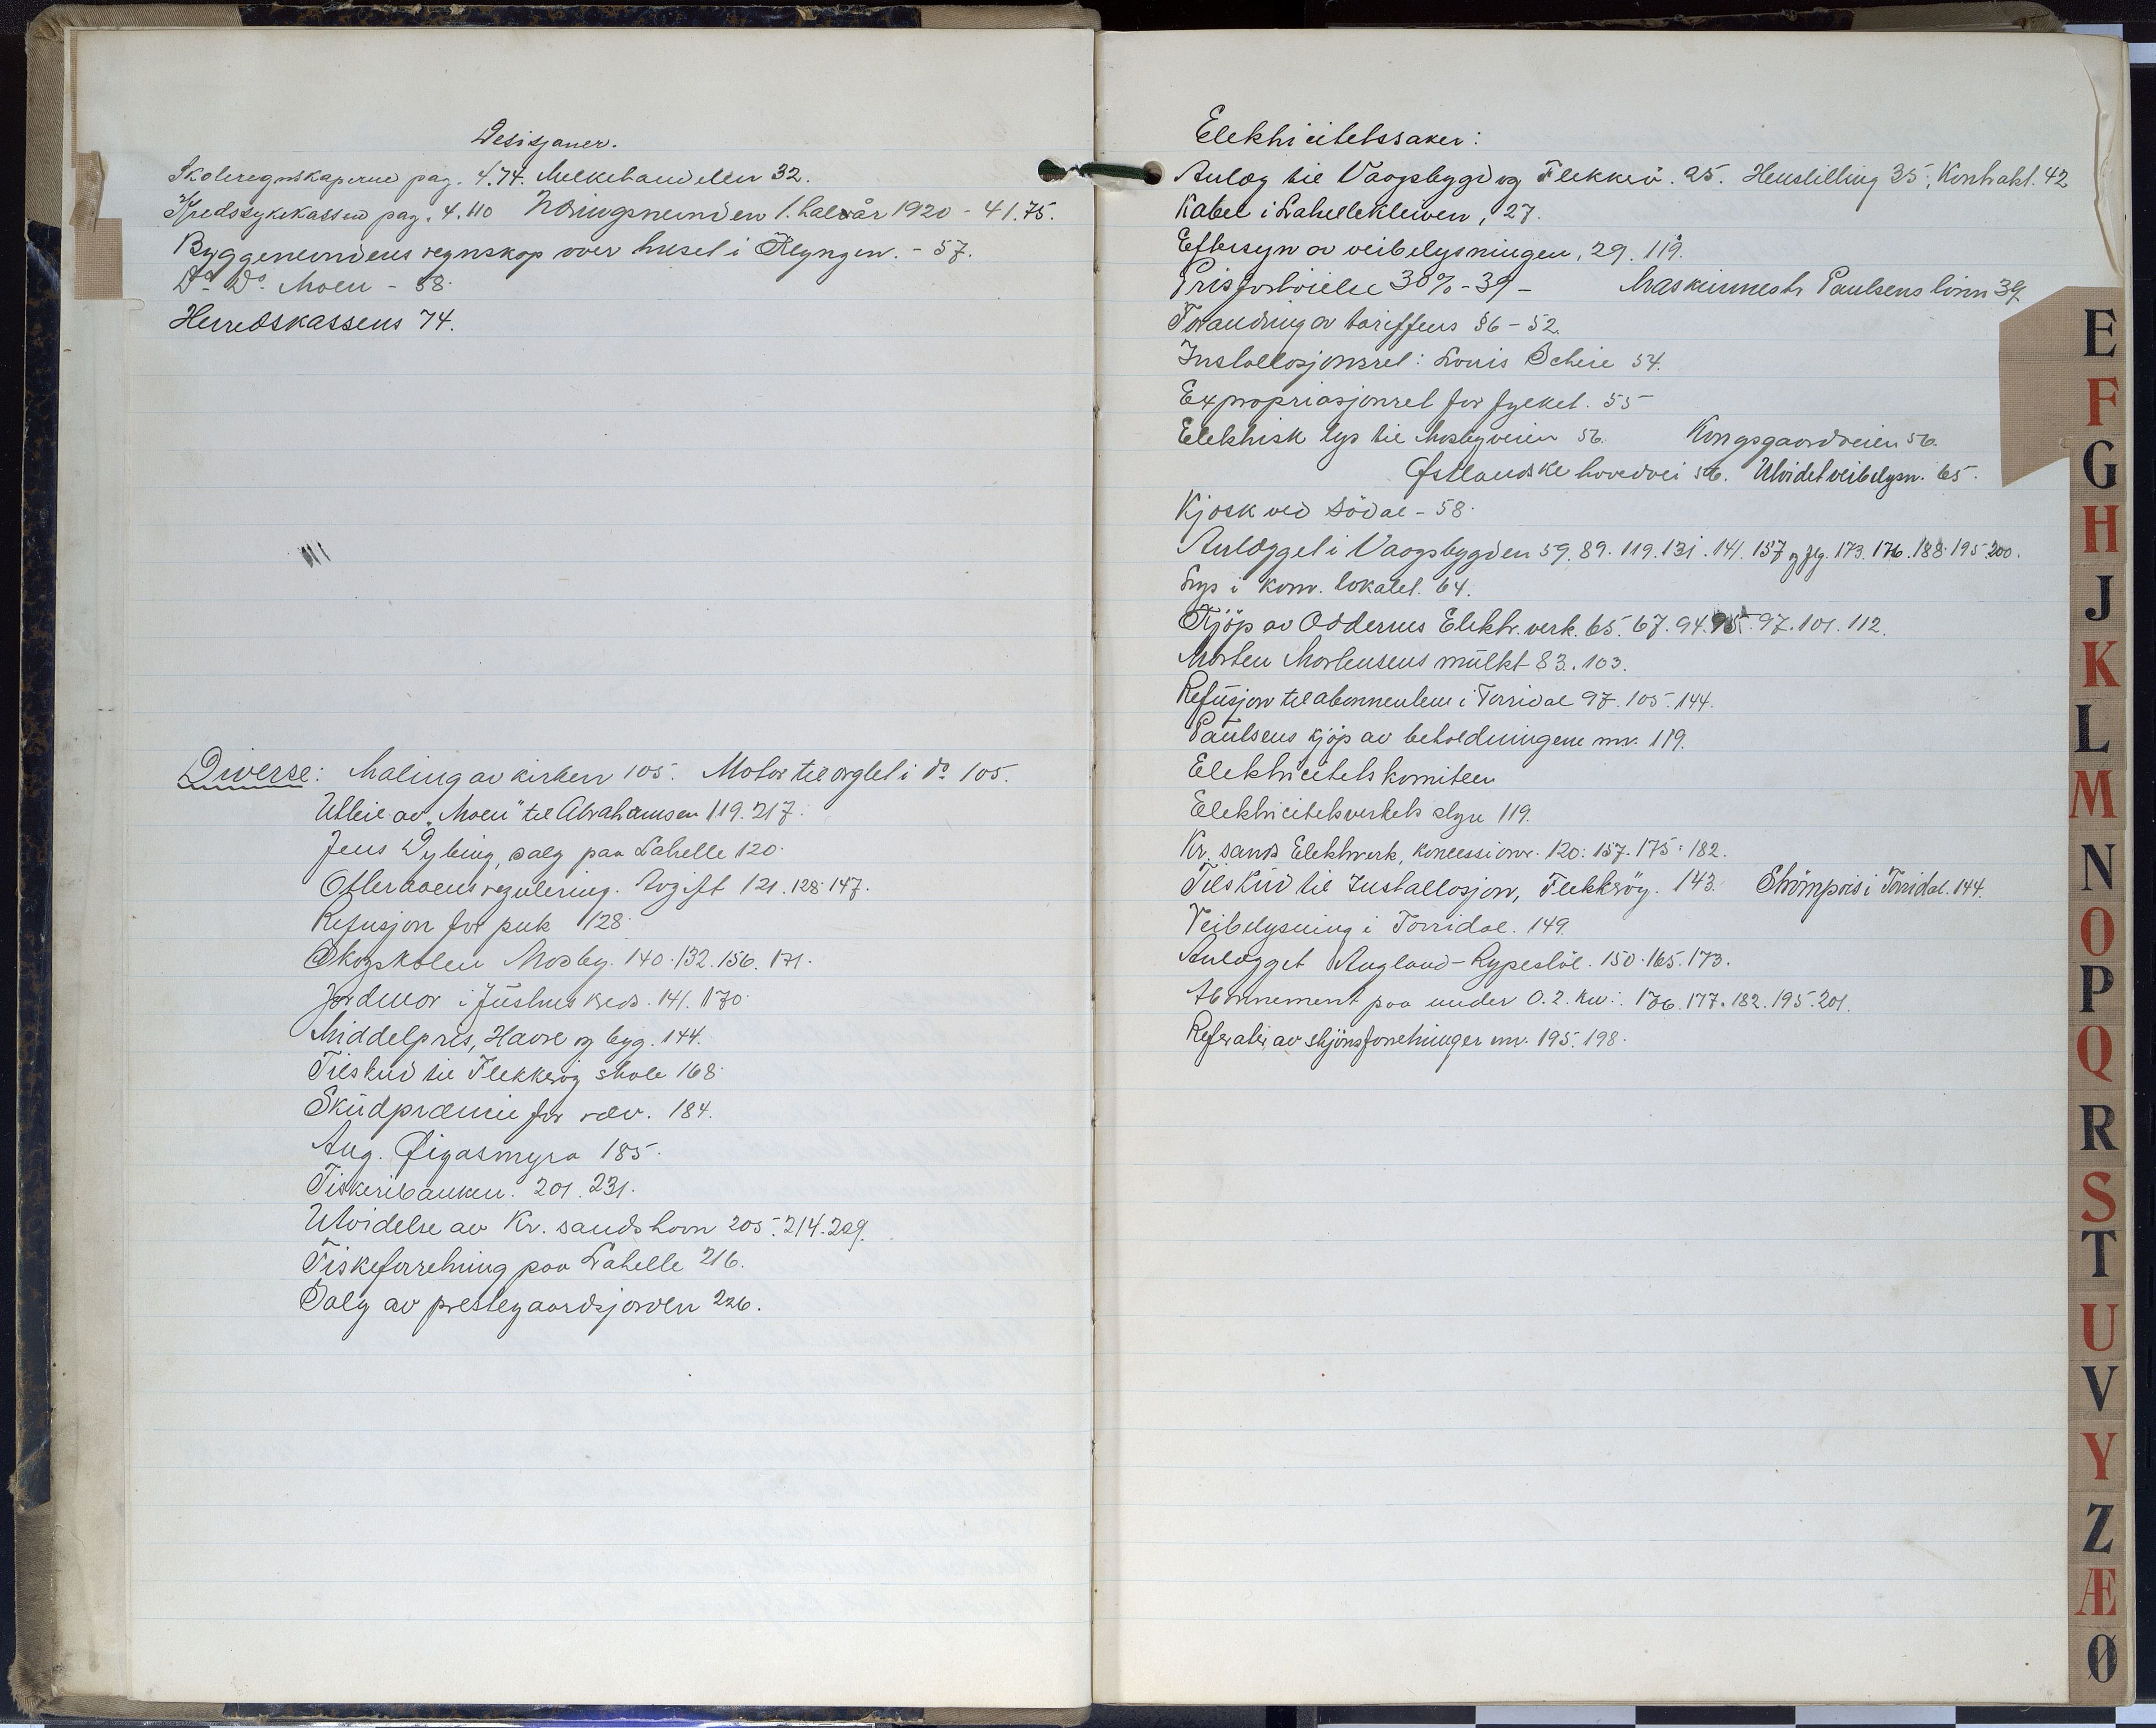 Desisjoner.
Skoleregnskaperne pag. 4.74. Melkehandelen 32.
Kredssykekassen pag. 4.110 Næringsnemnden 1. halvår 1920 - 41.75.
Byggenemndens regnskap over huset i Klyngen. - 57.
Do. Do. Moen - 58.
Herredskassens 74.
Diverse: Maling av kirken 105. Motor til orglet i do 105.
Utleie av "Moen" til Abrahamsen 119. 217.
Jens Dybing, salg paa Lahelle 120.
Otteraaens regulering. Avgift 121. 128. 147.
Refusjon for puk 128.
Skogskolen Mosby. 140. 132. 156. 171.
Jordmor i Justnes kreds. 141. 170.
Middelpris, Havre og byg. 144.
Tilskud til Flekkerøy skole 168.
Skudpræmie for ræv. 184.
Aug. Øigasmyra 185.
Fiskeribanken. 201. 231.
Utvidelse av Kr. sands havn 205. 214. 229.
Fiskeforretning paa Lahelle 216.
Salg av prestegaardsjorden 226.
Elektricitetssaker:
Anlæg til Vaagsbygd og Flekkerö. 25. Henstilling 35, Kontrakt. 42
Kabel i Lahellekleven, 27.
Eftersyn av veibelysningen, 29. 119.
Prisforhöielse 30% - 39 - Maskinmestr Paulsens lönn 39.
Forandring av tariffens §6 - 52.
Installasjonsret: Louis Scheie 54.
Expropriasjonsret for fylket. 55
Elektrisk lys til Mosbyveien 56. Kongsgaardveien 56.
Østlandske hovedvei 56. Utvidet veibelysn. 65.
Kjosk ved Södal - 58.
Anlægget i Vaagsbygden 59. 89. 119. 131. 141. 157 og flg. 173. 176. 188. 195. 200.
Lys i kom. lokalet. 64.
Kjöp av Oddernes Elektr. verk. 65. 67. 94. 95. 97. 101. 112.
Morten Mortensens mulkt 83. 103.
Refusjon til abonnentene i Torridal 97. 105. 144.
Paulsens kjöp av beholdningene mv. 119.
Elektricitetskomiteen
Elektricitetsverkets styre 119.
Kr. sands Elektrverk, koncessioner. 120. 157. 175. 182.
Tilskud til Installasjon, Flekkröy. 143. Strömpris i Torridal. 144.
Veibelysning i Torridal. 149.
Anlægget Augland - Rypestöl. 150. 165. 173.
Abonnement paa under 0.2. Kw: 176. 177. 182. 195. 201.
Referater av skjönsforretninger mv. 195. 198.
E
F
G
H
J
K
L
M
N
O
P
Q
R
S
T
U
V
Y
Z
Æ
Ø